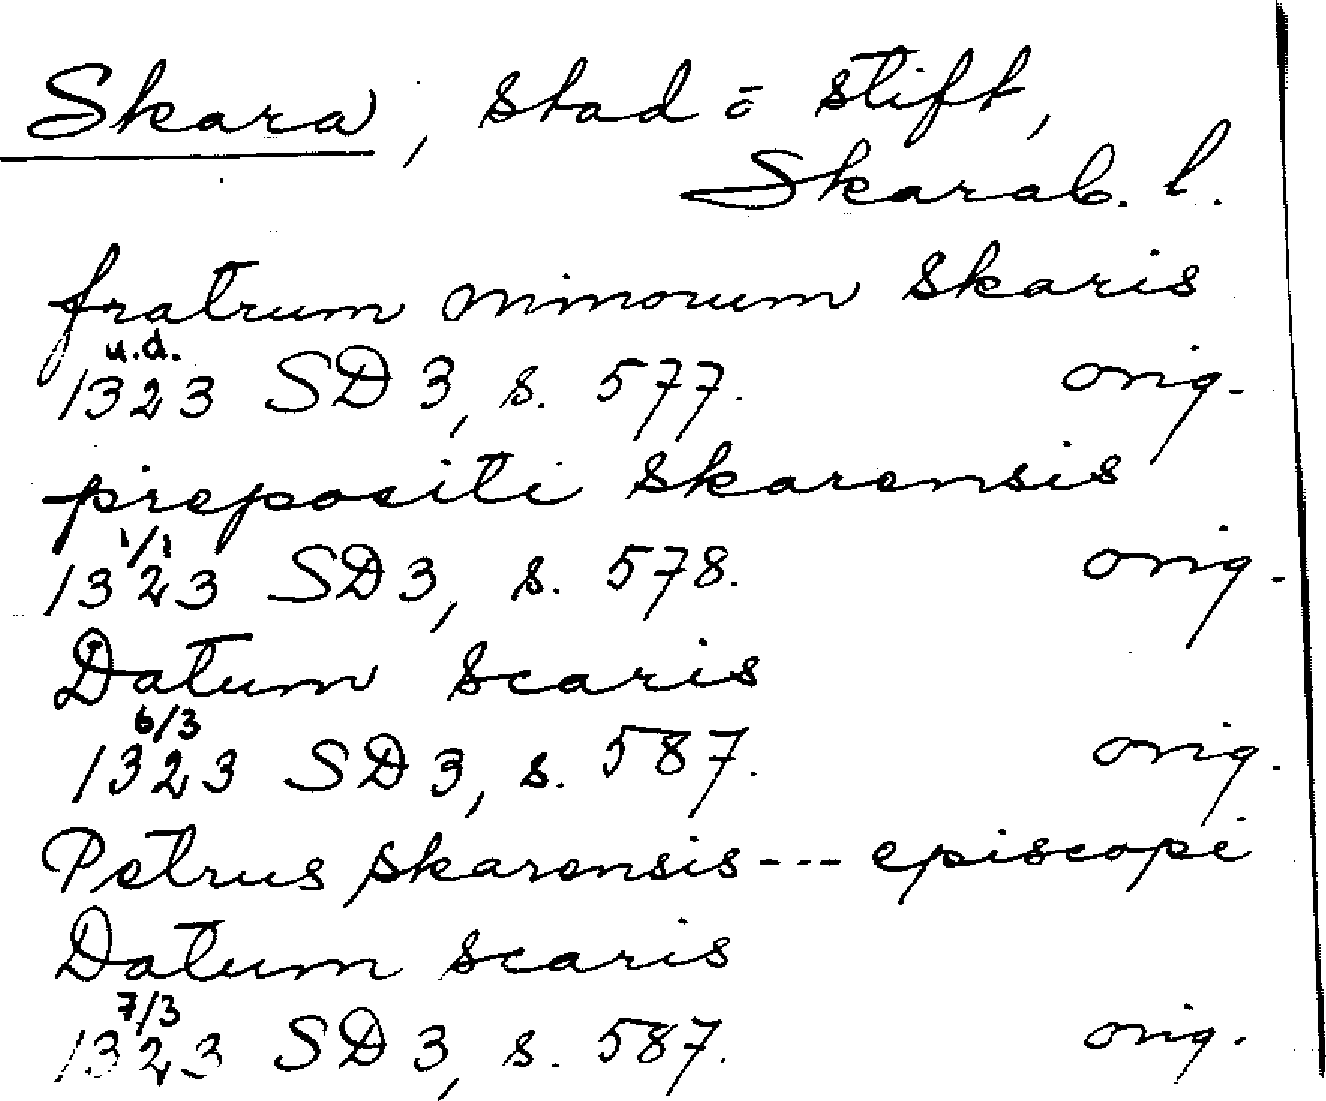 Skara, stad o stift,
Skarab. l.
fratrum minorum Skaris
u.d.
1323 SD 3, s. 577. orig.
prepositi skarensis
1/1
1323 SD 3, s. 578. orig.
Datum scaris
6/3
1323 SD 3, s. 587. orig.
Petrus skarensis --- episcopi
Datum scaris
7/3
1323 SD 3, s. 587. orig.